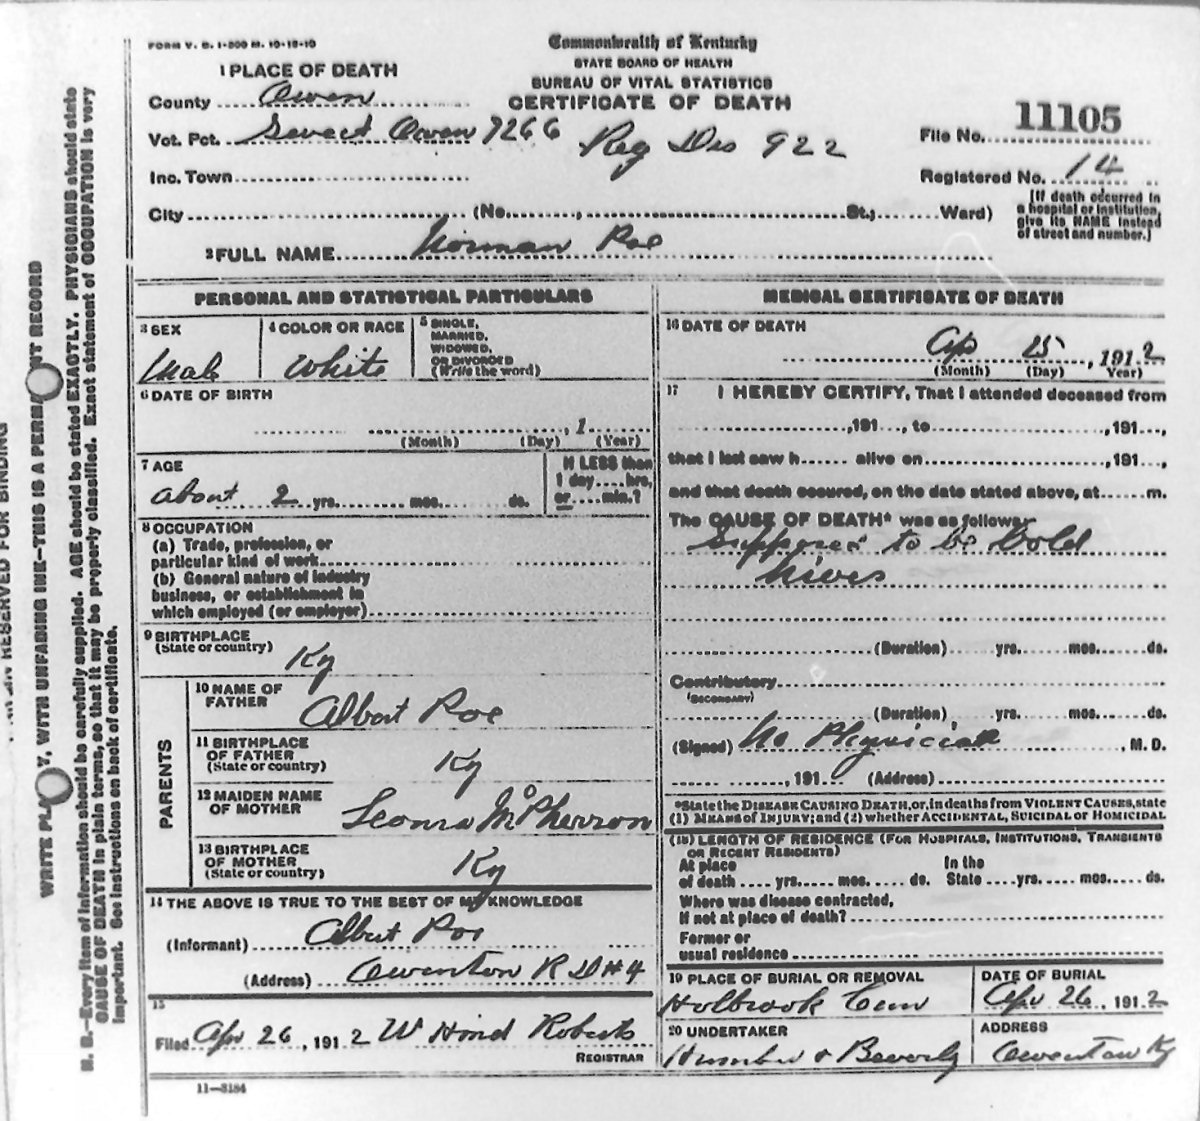 FORM V. S. 1-500 M. 10-13-10
Commonwealth of Kentucky
STATE BOARD OF HEALTH
BUREAU OF VITAL STATISTICS
CERTIFICATE OF DEATH
1 PLACE OF DEATH
County Owen
Vot. Pct. Owen 7266 Reg Dis 922
File No. 11105
Inc. Town
Registered No. 14
City (No. , St.; Ward)
(If death occurred in
a hospital or institution,
give its NAME instead
of street and number.)
2 FULL NAME Norman Roe
PERSONAL AND STATISTICAL PARTICULARS
3 SEX
Male
4 COLOR OR RACE
White
5 SINGLE,
MARRIED,
WIDOWED,
OR DIVORCED
(Write the word)
6 DATE OF BIRTH
, 1
(Month) (Day) (Year)
7 AGE
about 2 yrs. mos. ds.
If LESS than
1 day....hrs,
or....min.?
8 OCCUPATION
(a) Trade, profession, or
particular kind of work
(b) General nature of industry
business, or establishment in
which employed (or employer)
9 BIRTHPLACE
(State or country)
Ky
PARENTS
10 NAME OF
FATHER
Albert Roe
11 BIRTHPLACE
OF FATHER
(State or country)
Ky
12 MAIDEN NAME
OF MOTHER
Leonra McPherron
13 BIRTHPLACE
OF MOTHER
(State or country)
Ky
14 THE ABOVE IS TRUE TO THE BEST OF MY KNOWLEDGE
(Informant) Albert Roe
(Address) Owenton R D #4
15
Filed Apr 26, 1912 W Hind Roberts
REGISTRAR
11—3184
MEDICAL CERTIFICATE OF DEATH
16 DATE OF DEATH
Ap 25, 1912
(Month) (Day) Year)
17 I HEREBY CERTIFY, That I attended deceased from
,191..., to ,191...,
that I last saw h...... alive on ,191...,
and that death occured, on the date stated above, at......m.
The CAUSE OF DEATH* was as follows:
Supposed to be bold
hives
(Duration) yrs. mos. ds.
Contributory
(SECONDARY)
(Duration) yrs. mos. ds.
(Signed) No Physician , M. D.
, 191 (Address)
*State the DISEASE CAUSING DEATH, or, in deaths from VIOLENT CAUSES, state
(1) MEANS of INJURY; and (2) whether ACCIDENTAL, SUICIDAL OR HOMICIDAL
(18) LENGTH OF RESIDENCE (FOR HOSPITALS, INSTITUTIONS, TRANSIENTS
OR RECENT RESIDENTS)
At place In the
of death .... yrs. .... mos. .... ds. State .... yrs. .... mos. .... ds.
Where was disease contracted,
If not at place of death?
Former or
usual residence
19 PLACE OF BURIAL OR REMOVAL
Holbrook Cem
DATE OF BURIAL
Apr 26, 1912
20 UNDERTAKER
& Beverly
ADDRESS
Owenton Ky
RESERVED FOR BINDING
WRITE PLAINLY, WITH UNFADING INK—THIS IS A PERMANENT RECORD
N. B.—Every item of information should be carefully supplied. AGE should be stated EXACTLY. PHYSICIANS should state
CAUSE OF DEATH in plain terms, so that it may be properly classified. Exact statement of OCCUPATION is very
important. See instructions on back of certificate.